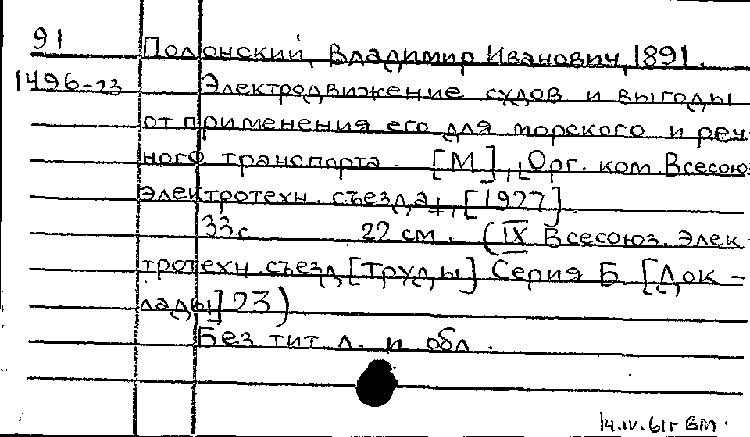 91 Полонский, Владимир Иванович, 1891.
1496-23 Электродвижение судов и выгоды
от применения его для морского и реч-
ного транспорта. [М], Орг. ком. Всесоюз.
Электротехн. съезда, [1927]
33 с 22 см. (IX Всесоюз. элек-
тротехн. съезд [Труды] Серия Б [Док-
лады] 23)
Без тит л. и обл.
14.IV.61г ВМ.